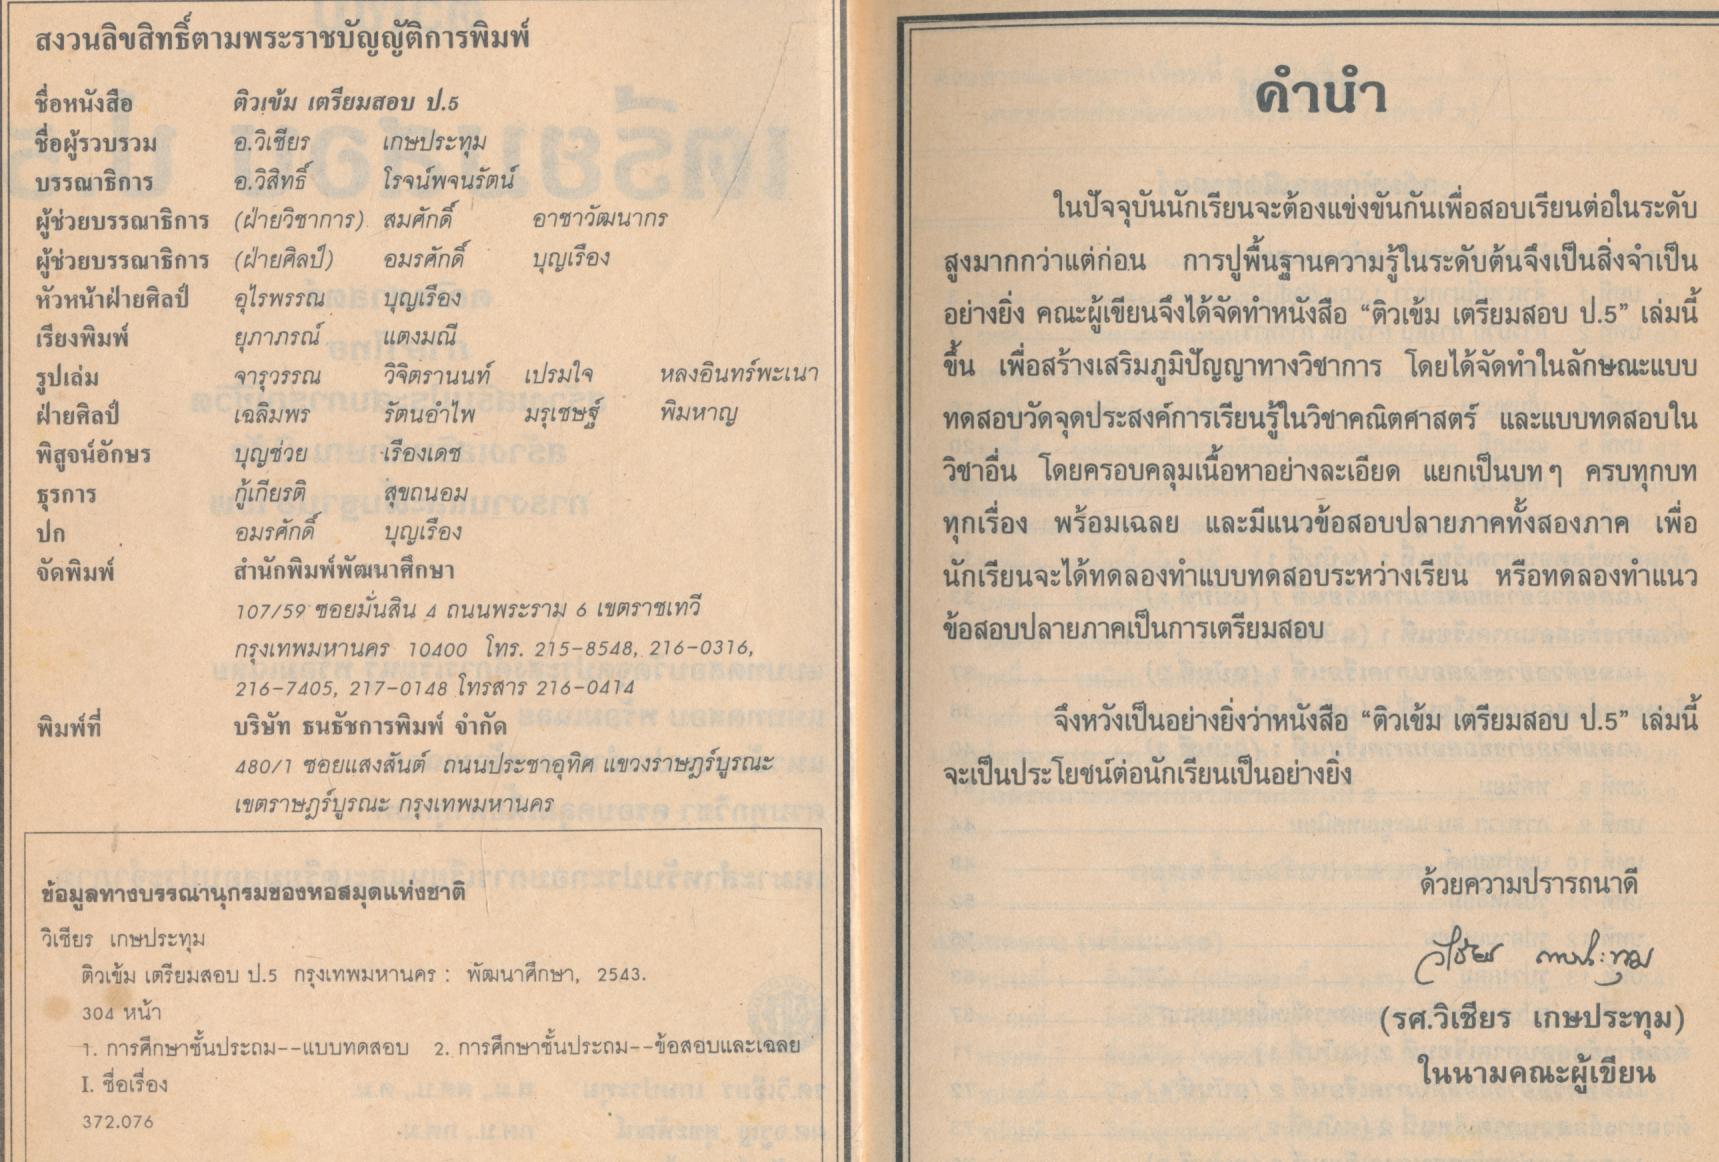 สงวนลิขสิทธิ์ตามพระราชบัญญัติการพิมพ์
ชื่อหนังสือ ติวเข้ม เตรียมสอบ ป.5
ชื่อผู้รวบรวม อ.วิเชียร เกษประทุม
บรรณาธิการ อ.วิสิทธิ์ โรจน์พจนรัตน์
ผู้ช่วยบรรณาธิการ (ฝ่ายวิชาการ) สมศักดิ์ อาชาวัฒนากร
ผู้ช่วยบรรณาธิการ (ฝ่ายศิลป์) อมรศักดิ์ บุญเรือง
หัวหน้าฝ่ายศิลป์ อุไรพรรณ บุญเรือง
เรียงพิมพ์ ยุภาภรณ์ แตงมณี
รูปเล่ม จารุวรรณ วิจิตรานนท์ เปรมใจ หลงอินทร์พะเนา
ฝ่ายศิลป์ เฉลิมพร รัตนอำไพ มรุเชษฐ์ พิมหาญ
พิสูจน์อักษร บุญช่วย เรืองเดช
ธุรการ กู้เกียรติ สุขถนอม
ปก อมรศักดิ์ บุญเรือง
จัดพิมพ์ สำนักพิมพ์พัฒนาศึกษา
107/59 ซอยมั่นสิน 4 ถนนพระราม 6 เขตราชเทวี
กรุงเทพมหานคร 10400 โทร. 215-8548, 216-0316,
216-7405, 217-0148 โทรสาร 216-0414
พิมพ์ที่ บริษัท ธนธัชการพิมพ์ จำกัด
480/1 ซอยแสงสันต์ ถนนประชาอุทิศ แขวงราษฎร์บูรณะ
เขตราษฎร์บูรณะ กรุงเทพมหานคร
ข้อมูลทางบรรณานุกรมของหอสมุดแห่งชาติ
วิเชียร เกษประทุม
ติวเข้ม เตรียมสอบ ป.5 กรุงเทพมหานคร : พัฒนาศึกษา, 2543.
304 หน้า
1. การศึกษาชั้นประถม--แบบทดสอบ 2. การศึกษาชั้นประถม--ข้อสอบและเฉลย
I. ชื่อเรื่อง
372.076
คำนำ
ในปัจจุบันนักเรียนจะต้องแข่งขันกันเพื่อสอบเรียนต่อในระดับ
สูงมากกว่าแต่ก่อน การปูพื้นฐานความรู้ในระดับต้นจึงเป็นสิ่งจำเป็น
อย่างยิ่ง คณะผู้เขียนจึงได้จัดทำหนังสือ “ติวเข้ม เตรียมสอบ ป.5” เล่มนี้
ขึ้น เพื่อสร้างเสริมภูมิปัญญาทางวิชาการ โดยได้จัดทำในลักษณะแบบ
ทดสอบวัดจุดประสงค์การเรียนรู้ในวิชาคณิตศาสตร์ และแบบทดสอบใน
วิชาอื่น โดยครอบคลุมเนื้อหาอย่างละเอียด แยกเป็นบทๆ ครบทุกบท
ทุกเรื่อง พร้อมเฉลย และมีแนวข้อสอบปลายภาคทั้งสองภาค เพื่อ
นักเรียนจะได้ทดลองทำแบบทดสอบระหว่างเรียน หรือทดลองทำแนว
ข้อสอบปลายภาคเป็นการเตรียมสอบ
จึงหวังเป็นอย่างยิ่งว่าหนังสือ “ติวเข้ม เตรียมสอบ ป.5” เล่มนี้
จะเป็นประโยชน์ต่อนักเรียนเป็นอย่างยิ่ง
ด้วยความปรารถนาดี
วิเชียร เกษประทุม
(รศ.วิเชียร เกษประทุม)
ในนามคณะผู้เขียน